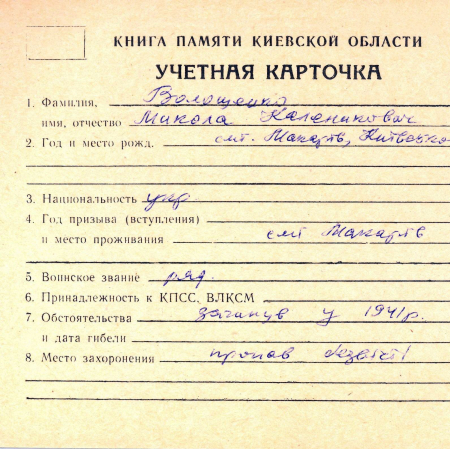 КНИГА ПАМЯТИ КИЕВСКОЙ ОБЛАСТИ
УЧЕТНАЯ КАРТОЧКА
1. Фамилия, Волощенко
имя, отчество Микола Каленикович
2. Год и место рожд. смт. Макарів,
3. Национальность укр
4. Год призыва (вступления)
и место проживания смт Макарів
5. Воинское звание ряд.
6. Принадлежность к КПСС, ВЛКСМ
7. Обстоятельства загинув у 1941р.
и дата гибели
8. Место захоронения пропав безвісті